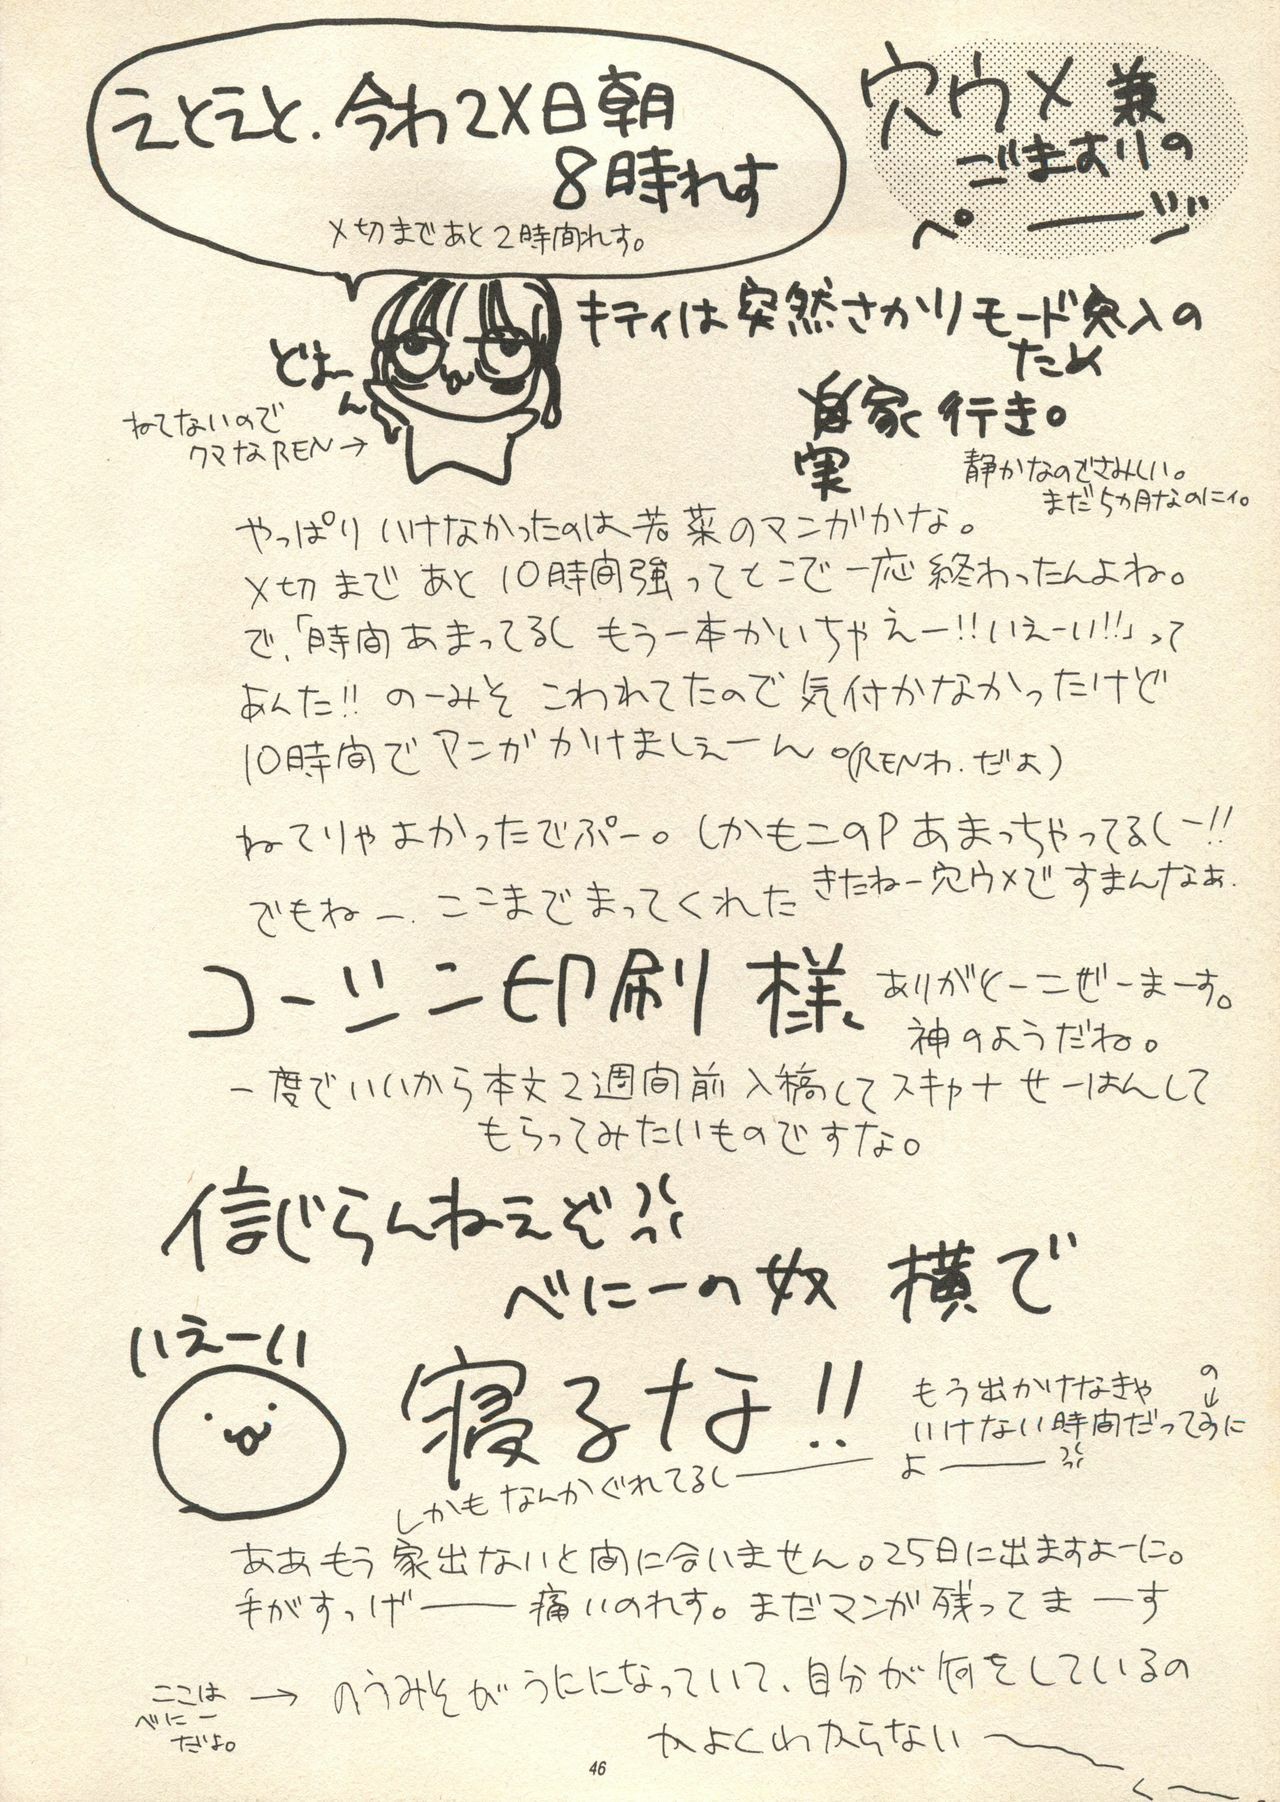 穴ウメ兼
ごますりの
ページ
えとえと.今わ2X日朝
8時れす
〆切まであと2時間れす。
どよーん
ねてないので
クマなREN→
キティは突然さかりモード突入の
ため
実家行き。
静かなのでさみしい。
まだ5ヵ月なのにィ。
やっぱりいけなかったのは若菜のマンガかな。
〆切まであと10時間強ってとこで一応終わったんよね。
で、「時間あまってるしもう一本かいちゃえー!!いえーい!!」って
あんた!!のーみそこわれてたので気付かなかったけど
10時間でマンガかけましぇーん。(RENわ.だよ)
ねてりゃよかったでぷー。しかもこのPあまっちゃってるしー!!
きたねー穴ウメですまんなぁ.
でもねー.ここまでまってくれた
コーシン印刷様、
ありがとーごぜーまーす。
神のようだね。
一度でいいから本文2週間前入稿してスキャナせーはんして
もらってみたいものですな。
信じらんねえぞ
べにーの奴横で
いえーい
寝るな!!
もう出かけなきゃ
の
↓
いけない時間だってのに
よ――
しかもなんかぐれてるし――
ああもう家出ないと間に合いません。25日に出ますよーに。
手がすっげ――痛いのれす。まだマンガ残ってまーす
ここは
べにー
だよ。
→のうみそがうにになっていて、自分が何をしているの
かよくわからない〜
く〜.
46